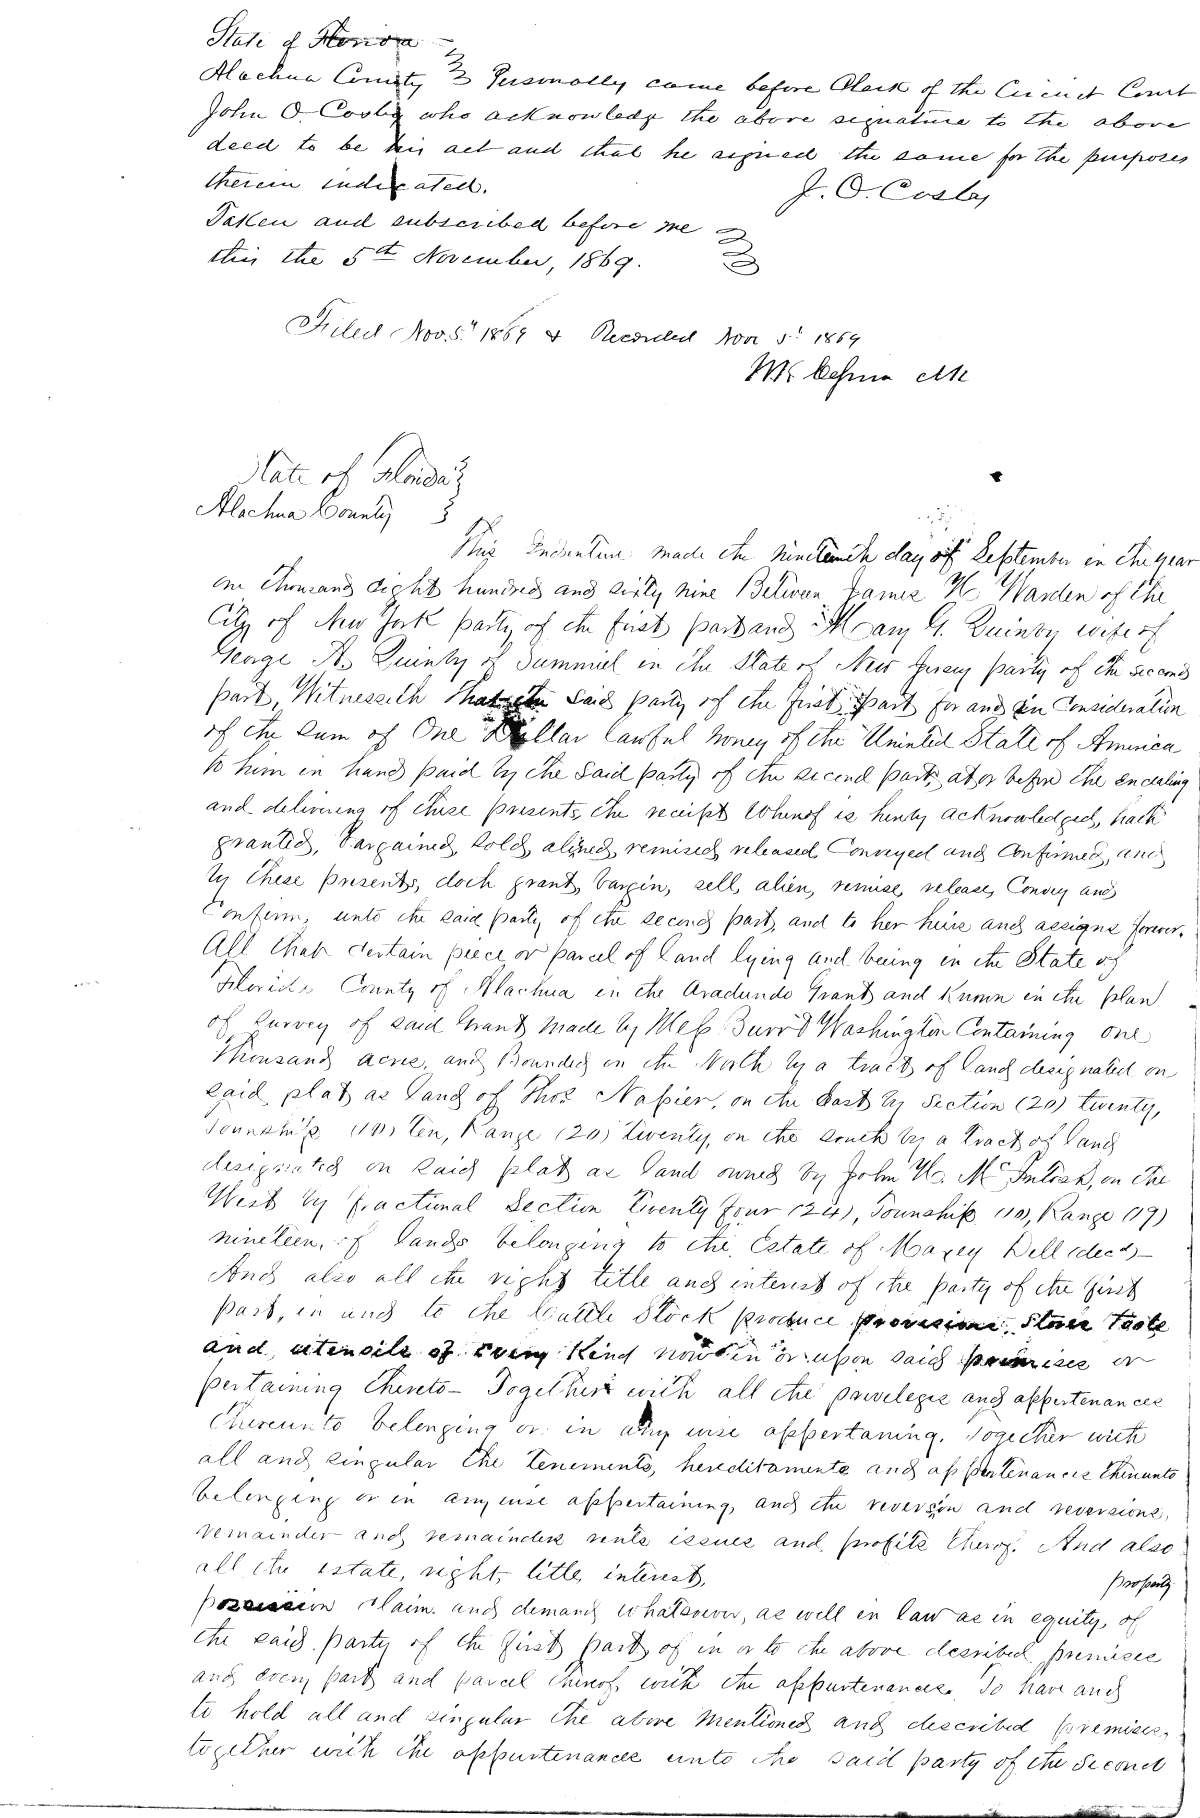 State of Florida
Alachua County } Personally came before Clerk of the Circuit Court
John O. Cosby who acknowledge the above signature to the above
deed to be his act and that he signed the same for the purposes
therein indicated. J. O. Cosby
Taken and subscribed before me
this the 5th November, 1869.
Filed Nov. 5" 1869 & Recorded Nov 5" 1869
Clk
State of Florida }
Alachua County }
This Indenture made the nineteenth day of September in the year
one thousand eight hundred and sixty nine Between James H. Warden of the
City of New York party of the first part and Mary G. Quinby wife of
George A. Quinby of Summit in the State of New Jersey party of the second
part, Witnesseth that the said party of the first part for and in Consideration
of the sum of One Dollar lawful money of the Uninted State of America
to him in hand paid by the said party of the second part, at or before the ensealing
and delivering of these presents, the receipt whereof is hereby acknowledged, hath
granted, bargained, sold, aliened, remised, released, Conveyed and Confirmed, and
by these presents, doth grant, bargin, sell, alien, remise, release, Convey and
Confirm, unto the said party of the second part, and to her heirs and assigns forever.
All that certain piece or parcel of land lying and being in the State of
Florida County of Alachua in the Aradundo Grant and Known in the plan
of Survey of said Grant made by Mess Burr & Washington Containing one
Thousand acres, and Bounded on the North by a tract of land designated on
said plat as land of Thos Napier, on the East by Section (20) twenty,
Township (10) ten, Range (20) twenty, on the south by a tract of land
designated on said plat as land owned by John H. McIntosh, on the
West by fractional Section twenty four (24), Township (10), Range (19)
nineteen, of lands belonging to the Estate of Maxey Dell (decd)–
And also all the right title and interest of the party of the first
part, in and to the Cattle Stock produce provisions, Stove Tools
and utensils of every Kind now in or upon said premises or
pertaining thereto– Together with all the privileges and appertenances
thereunto belonging or in any wise appertaning. Together with
all and singular the tenements, hereditaments and appertenances thereunto
belonging or in any wise appertaining, and the reversion and reversions,
remainder and remainders rents issues and profits thereof. And also
all the estate, right, title, interest, property
possession claim and demand whatsoever, as well in law as in equity, of
the said party of the first part of in or to the above described premises
and every part and parcel thereof, with the appurtenances. To have and
to hold all and singular the above mentioned and described premises,
together with the appurtenances unto the said party of the Second